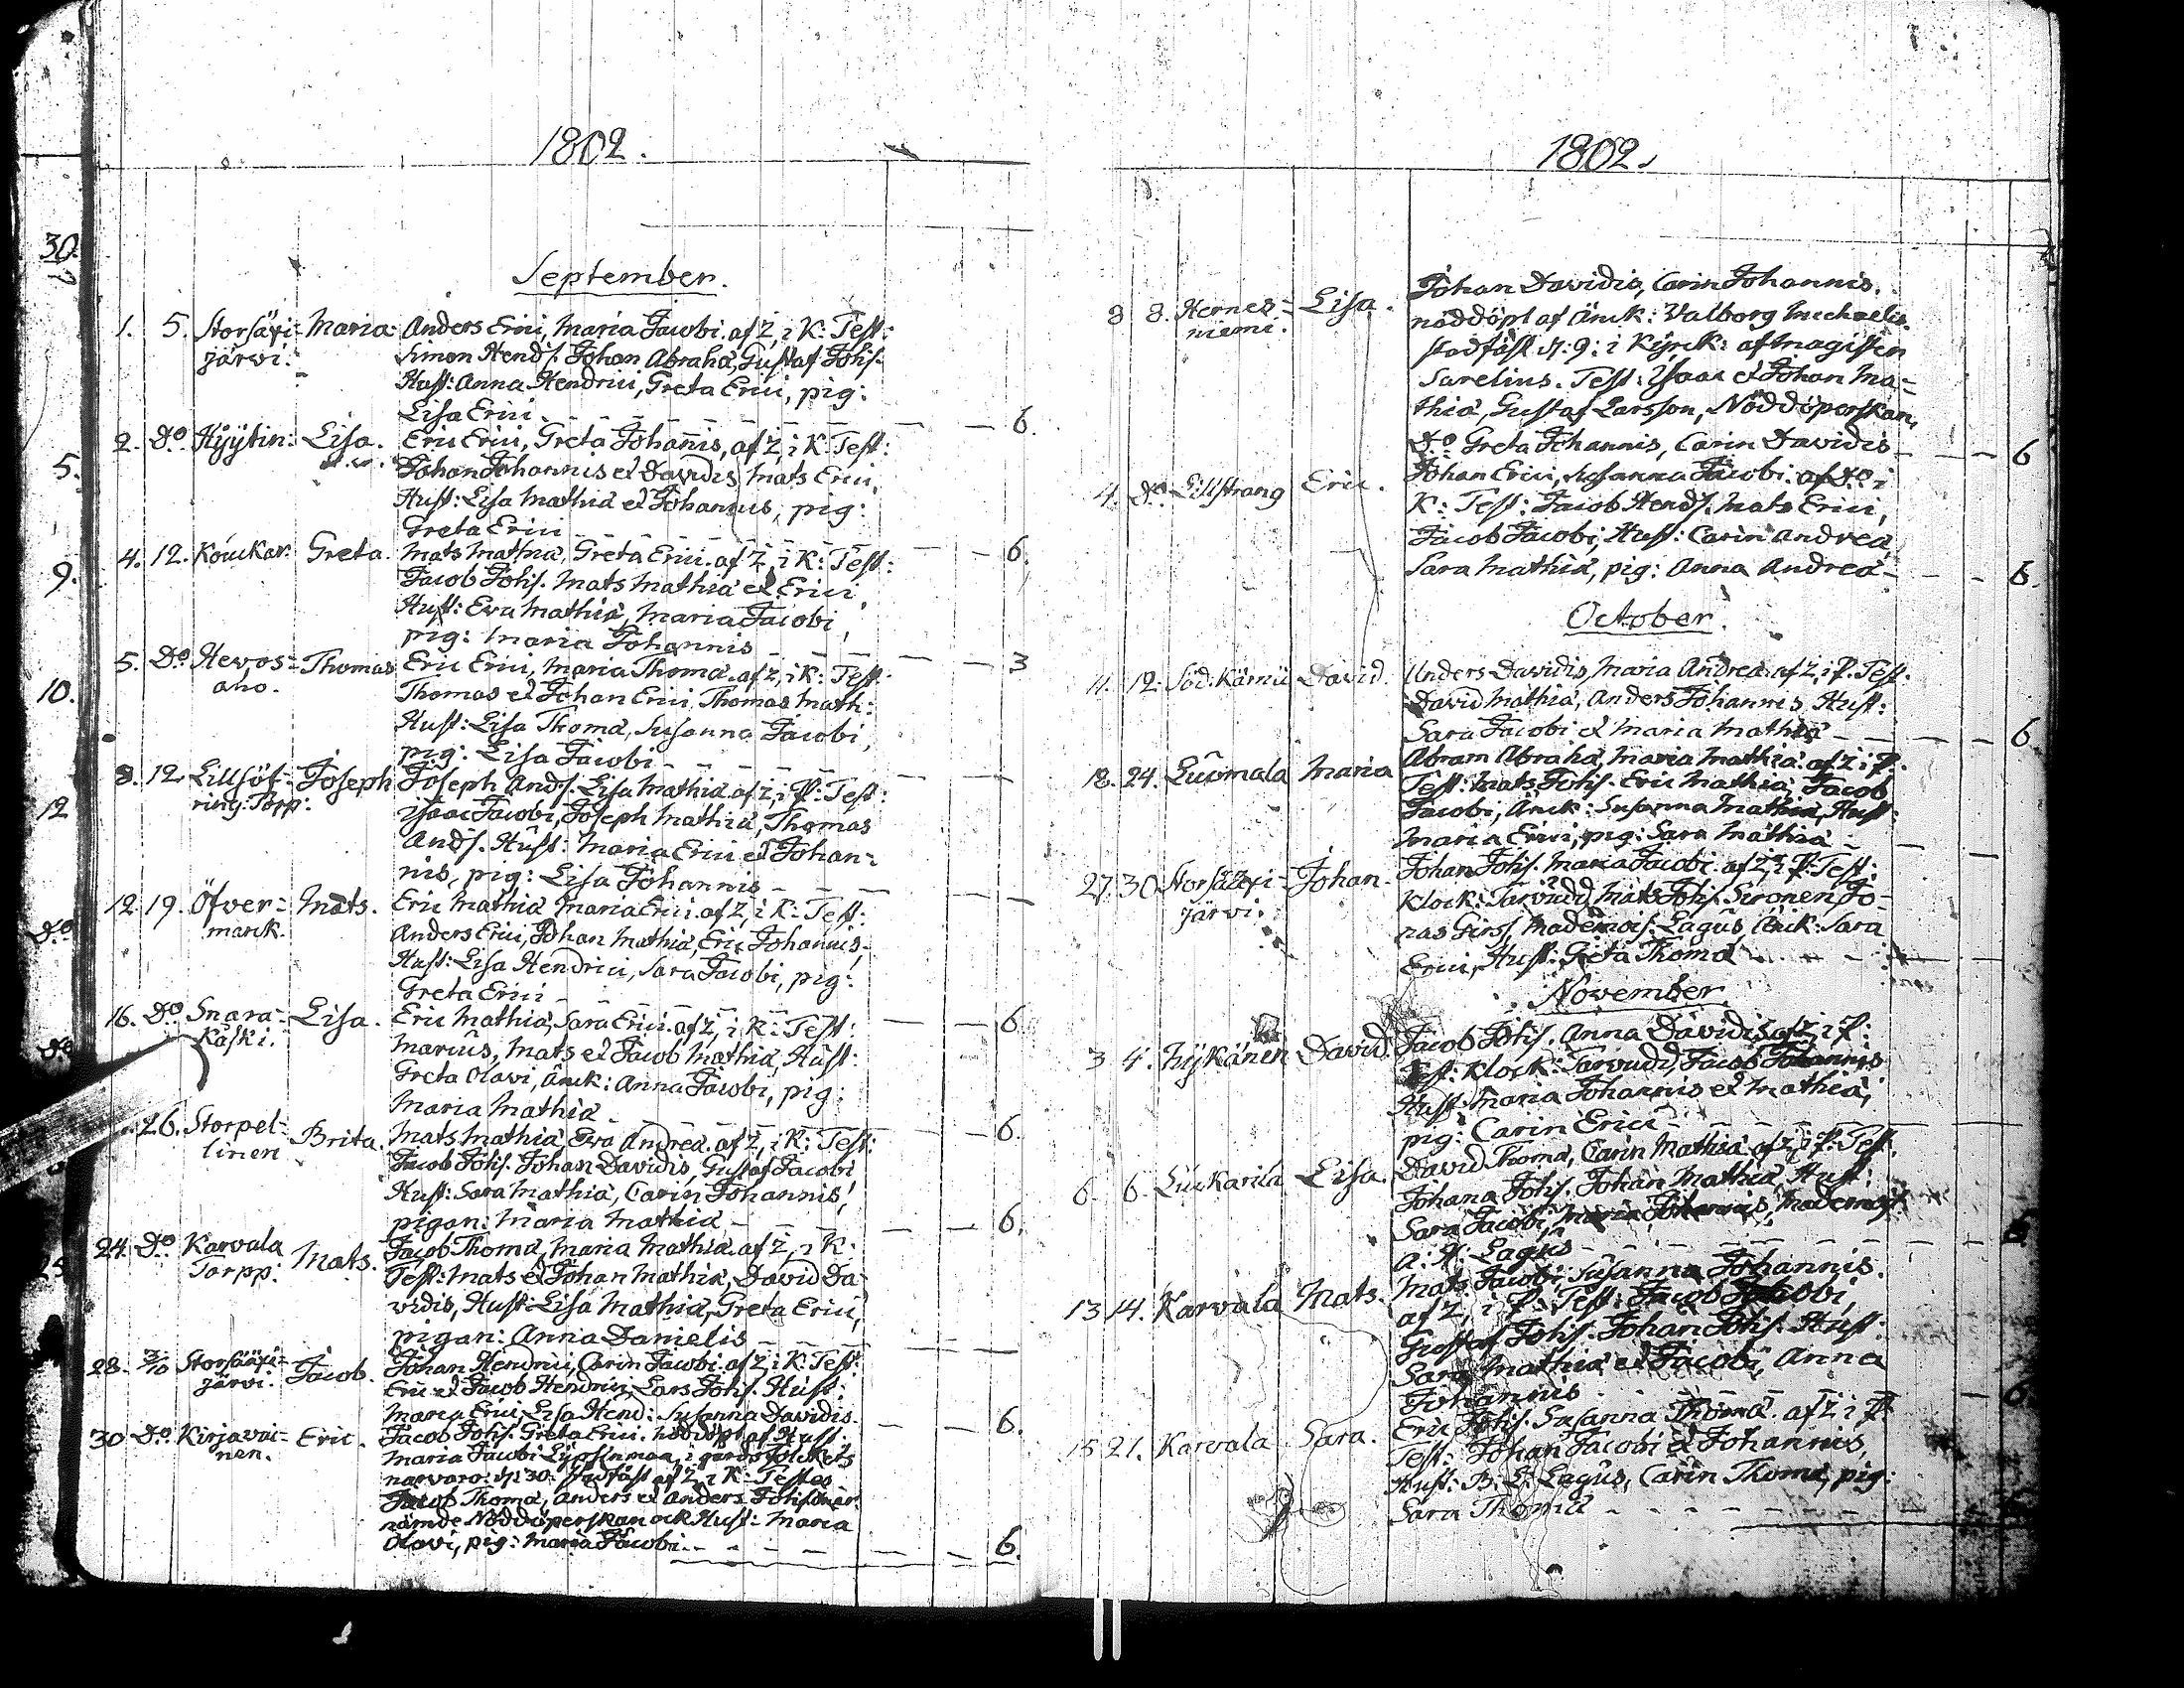 1802.
30.
5.
9.
10.
12
Do
Do
September.
1. 5. Storsäxi- Maria. Anders Erici, Maria Jacobi. af Z, i K: Test:
järvi. Simon Hends. Johan Abrahā, Gustaf Johs.
Hust: Anna Hendrici, Greta Erici, pig:
Lisa Erici - - - - - - 6.
2. Do Hyytin: Lisa. Eric Erici, Greta Johannis, af Z, i K: Test:
Johan Johannis et Davidis, Mats Erici,
Hust: Lisa Mathiä et Johannis, pig:
Greta Erici - - - - - - 6.
4. 12. Kouckar. Greta. Mats Mathiä, Greta Erici. af Z, i K: Test:
Jacob Johs. Mats Mathiä et Erici
Hust: Eva Mathiä, Maria Jacobi,
pig: Maria Johannis - - - - 3
5. Do Hevos- Thomas Eric Erici, Maria Thomä. af Z, i K: Test:
aho. Thomas et Johan Erici, Thomas Math:
Hust: Lisa Thomä, Susanna Jacobi,
pig: Lisa Jacobi - - - - -
8. 12. Lillsöf- Joseph Joseph Ands. Lisa Mathiä. af Z, i P: Test:
ring: Torp: Isaac Jacobi, Joseph Mathiä, Thomas
Ands. Hust: Maria Erici et Johan-
nis, pig: Lisa Johannis - - - -
12. 19. Öfver- Mats. Eric Mathiä, Maria Erici. af Z, i K: Test:
marck. Anders Erici, Johan Mathiä, Eric Johannis,
Hust: Lisa Hendrici, Sara Jacobi, pig:
Greta Erici - - - - - 6.
16. Do Snara- Lisa. Eric Mathiä, Sara Erici. af Z, i K: Test:
kåski. Marius, Mats et Jacob Mathiä, Hust:
Greta Olavi, Änck: Anna Jacobi, pig:
Maria Mathiä - - - - - 6.
26. Storpel- Brita. Mats Mathiä, Eva Andreä. af Z, i K: Test:
linen Jacob Johs. Johan Davidis, Gustaf Jacobi
Hust: Sara Mathiä, Carin Johannis,
pigan: Maria Mathiä - - - - 6.
24. Do Karvala Mats. Jacob Thomä, Maria Mathiä. af Z, i K:
Torpp: Test: Mats et Johan Mathiä, David Da-
vidis, Hust: Lisa Mathiä, Greta Erici,
pigan: Anna Danielis - - - -
28. 3/10 Storsääxi- Jacob. Johan Hendrici, Carin Jacobi. af Z, i K: Test:
järvi. Eric et Jacob Hendrici, Lars Johs. Hust:
Maria Erici, Lisa Hend: Susanna Davidis. - - 6.
30 Do Kirjavai- Eric. Jacob Johs. Greta Erici. nöddöpt af Hust:
nen. Maria Jacobi i gårdsfolckets
närvaro. d: 30. stadfäst af Z, i K: Testes
Jacob Thomä, Anders et Anders
nämde Nöddöperskan ock Hust: Maria
Olavi, pig: Maria Jacobi. - - - - 6.
1802.
8 8. Hernes- Lisa. Johan Davidis, Carin Johannis.
niemi. nöddöpt af Änck: Valborg Michaelis.
stadfäst d: 9: i Kyrck: af Magisten
Sarelius. Test: Isaac et Johan Ma-
thiä, Gustaf Larsson, Nöddöperskan,
Do Greta Johannis, Carin Davidis - - - 6
4. Do Lillstrang Eric. Johan Erici, Susanna Jacobi. af Do i
K: Test: Jacob Hends. Mats Erici,
Jacob Jacobi, Hust: Carin Andreä,
Sara Mathiä, pig: Anna Andreä - - - 6.
October.
11. 12. Söd: Kärnä David. Anders Davidis, Maria Andreä af Z, i P. Test.
David Mathiä, Anders Johannis, Hust:
Sara Jacobi et Maria Mathiä - - - - 6.
18. 24. Luomala Maria Abram Abrahä, Maria Mathiä. af Z i P.
Test: Mats Johs. Eric Mathiä, Jacob
Jacobi, Änck: Susanna Mathiä, Hust:
Maria Erici, pig: Sara Mathiä - - -
27. 30. Storsääxi- Johan. Johan Johs. Maria Jacobi. af Z, i P: Test:
järvi. Klock: Tarvudd, Mats Johs. Sironen, Jo-
nas Girs, Mademois: Lagus, Änck: Sara
Erici, Hust: Greta Thomä - - - -
November.
3 4. Nykänen David. Jacob Johs. Anna Davidis, af Z, i P:
Test: Klock: Tarvudd, Jacob Johannis
Hust: Maria Johannis et Mathiä,
pig: Carin Erici - - - - -
6. 6. Luckarila Lisa. David Thomä, Carin Mathiä. af Z, i P: Test.
Johana Johs. Johan Mathiä, Hust:
Sara Jacobi, Maria Johannis, Mademois:
A: H: Lagus - - - - - 6.
13 14. Karvala Mats. Mats Jacobi, Susanna Johannis.
af Z, i P: Test: Jacob Jacobi,
Gustaf Johs. Johan Johs. Hust:
Sara Mathiä et Jacobi, Anna
Johannis - - - - - 6.
15 21. Karvala Sara. Eric Johs. Susanna Thomä. af Z i P
Test: Johan Jacobi et Johannis,
Hust: B: L: Lagus, Carin Thomä, pig:
Sara Thomä - - - - - -